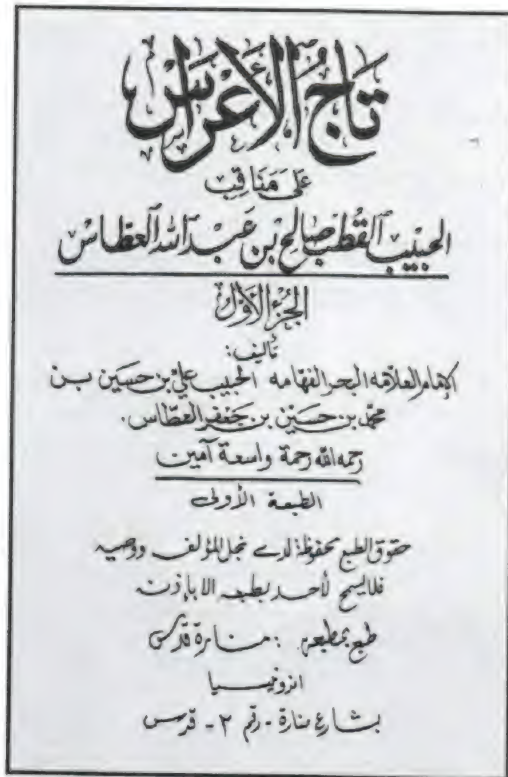 تَاجُ الأَعْرَاسِ
عَلَى مَنَاقِبِ
الحَبِيبِ القُطْبِ صَالِحِ بْنِ عَبْدِ اللهِ العَطَّاسْ
الجُزْءُ الأَوَّلُ
تأليف:
الإمام العلامه البحر الفهامه الحبيب علي بن حسين بن
محمد بن حسين بن جعفر العطّاس.
رحمه الله رحمة واسعة آمين
الطبعة الأولى
حقوق الطبع محفوظة لدى نجل المؤلف ووصيه
فلا يسمح لأحد بطبعه الا باذنه
طبع بمطبعة : منارة قدس
اندونيسيا
بشارع منارة - رقم ٢ - قدس